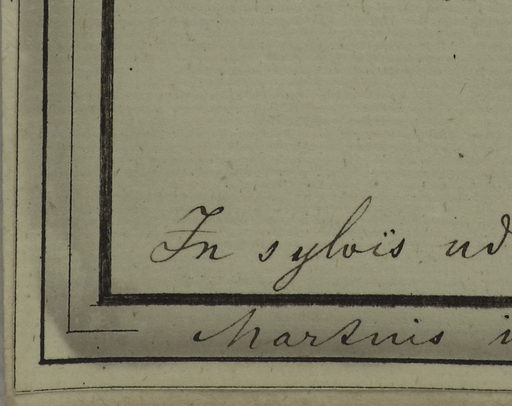 In sylvis ud
Martnis i